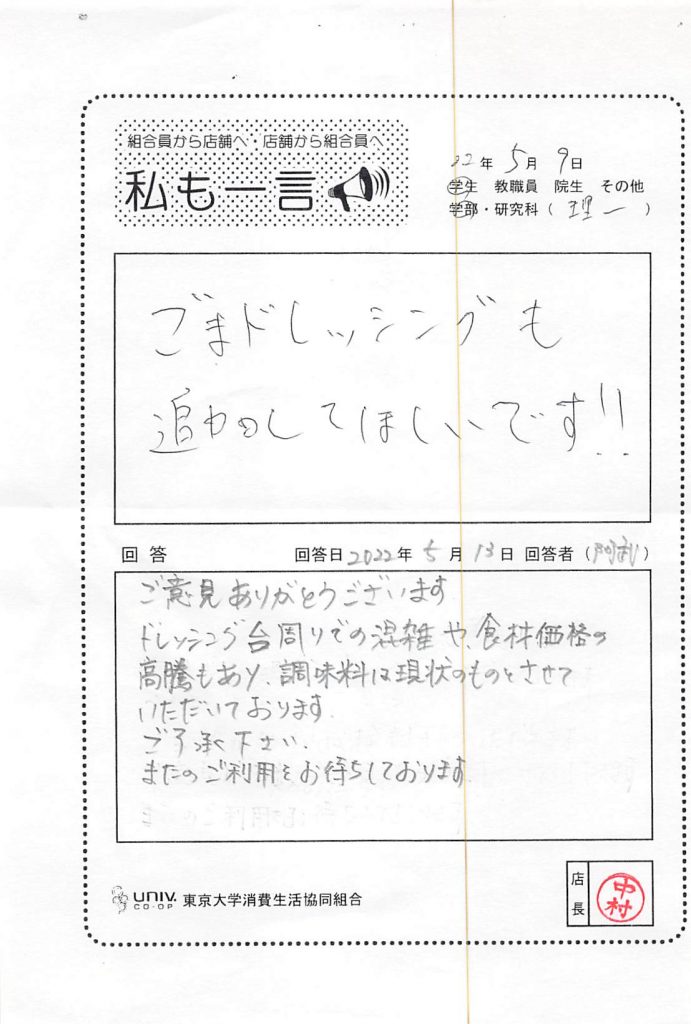 組合員から店舗へ・店舗から組合員へ
私も一言
22年 5月 9日
学生 教職員 院生 その他
学部・研究科（ 理一 ）
ごまドレッシングも
追加してほしいです!!
回答 回答日 2022年 5月 13日 回答者（阿武）
ご意見ありがとうございます
ドレッシング台周りでの混雑や、食材価格の
高騰もあり、調味料は現状のものとさせて
いただいております。
ご了承下さい。
またのご利用をお待ちしております。
UNIV. CO-OP 東京大学消費生活協同組合
店長 中村